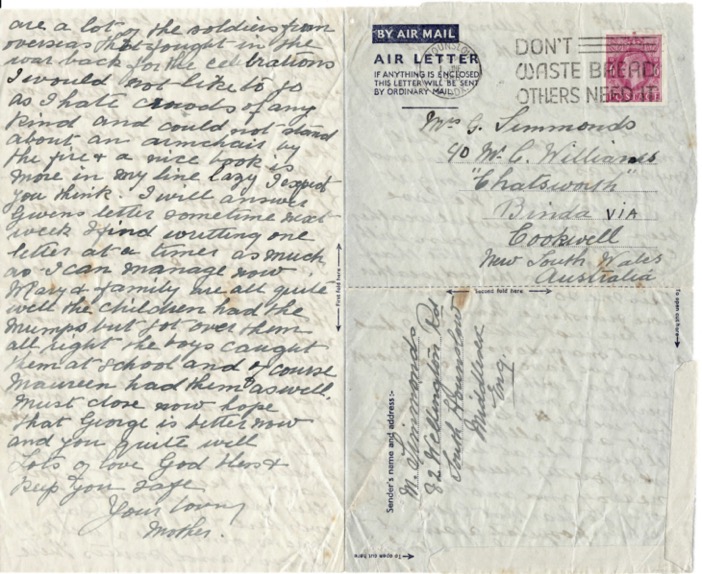 are a lot of the soldiers from
overseas that fought in the
war back for the celebrations
I would not like to go
as I hate crowds of any
kind and could not stand
about an armchair by
the fire & a nice book is
more in my line lazy I expect
you think. I will answer
Gwens letter sometime next
week I find writting one
letter at a times as much
as I can manage now
Mary & family are all quite
well the children had the
mumps but got over them
all right the boys caught
them at school and of course
Maureen had them as well.
Must close now hope
that George is better now
and you quite well
Lots of love God bless &
keep you safe
Your loving
Mother.
BY AIR MAIL
AIR LETTER
IF ANYTHING IS ENCLOSED
THIS LETTER WILL BE SENT
BY ORDINARY MAIL.
HOUNSLOW
DON'T
WASTE BREAD
OTHERS NEED IT
Mrs G. Simmonds
c/o Mr C. Williams
"Chatsworth"
Binda VIA
Cookwell
New South Wales
Australia
First fold here
Second fold here
To open cut here
Sender's name and address:-
M. Simmonds
82 Wellington Rd
South Hounslow
Middlesex
Eng.
To open cut here